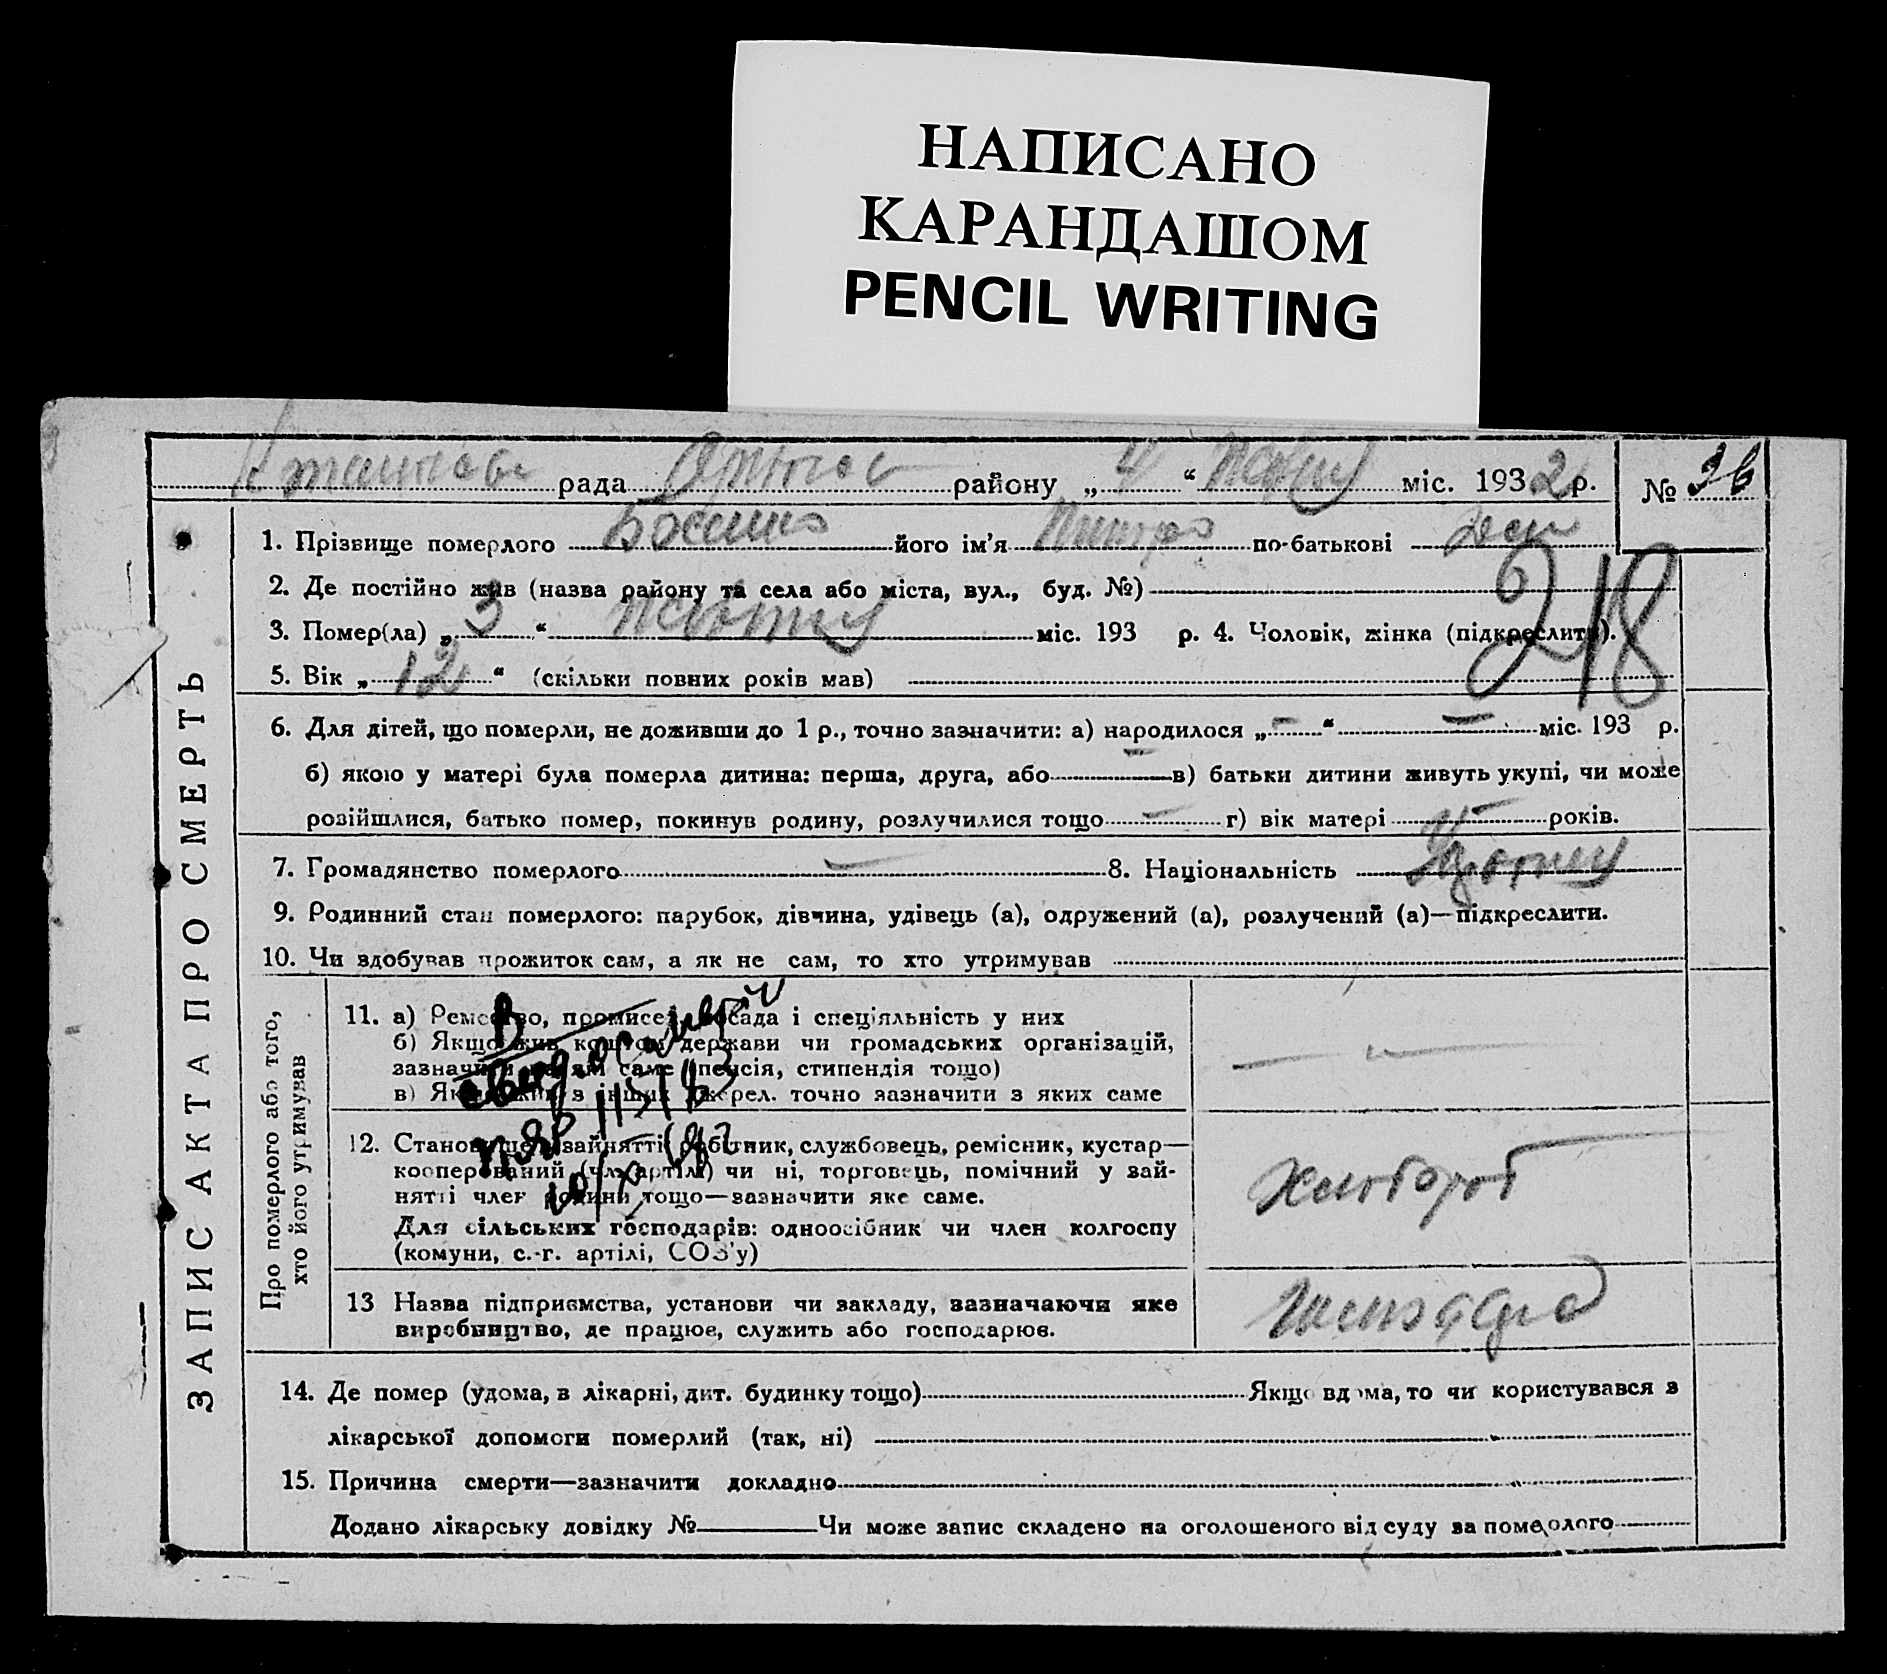 НАПИСАНО
КАРАНДАШОМ
PENCIL WRITING
рада району „4“ міс. 1932 р. № 36
ЗАПИС АКТА ПРО СМЕРТЬ
1. Прізвище померлого його ім'я по-батькові
2. Де постійно жив (назва району та села або міста, вул., буд. №)
218
3. Помер(ла) „3“ міс. 193 р. 4. Чоловік, жінка (підкреслити).
5. Вік „12“ (скільки повних років мав)
6. Для дітей, що померли, не доживши до 1 р., точно зазначити: а) народилося „—“ — міс. 193 р.
б) якою у матері була померла дитина: перша, друга, або — в) батьки дитини живуть укупі, чи може
розійшлися, батько помер, покинув родину, розлучилися тощо — г) вік матері — років.
7. Громадянство померлого — 8. Національність
9. Родинний стан померлого: парубок, дівчина, удівець (а), одружений (а), розлучений (а)—підкреслити.
10. Чи здобував прожиток сам, а як не сам, то хто утримував
Про померлого або того,
хто його утримував
11. а) Ремество, промисел, посада і спеціяльність у них
б) Якщо жив коштом держави чи громадських організацій,
зазначити яким саме (пенсія, стипендія тощо)
в) Якщо жив з інших джерел. точно зазначити з яких саме
— —
12. Становище в зайнятті: робітник, службовець, ремісник, кустар—
кооперований (чл. артілі) чи ні, торговець, помічний у зай-
нятті член родини тощо—зазначити яке саме.
Для сільських господарів: одноосібник чи член колгоспу
(комуни, с.-г. артілі, СОЗ'у)
хлібороб
13 Назва підприємства, установи чи закладу, зазначаючи яке
виробництво, де працює, служить або господарює.
14. Де помер (удома, в лікарні, дит. будинку тощо) Якщо вдома, то чи користувався з
лікарської допомоги померлий (так, ні)
15. Причина смерти—зазначити докладно
Додано лікарську довідку № Чи може запис складено на оголошеного від суду за померлого